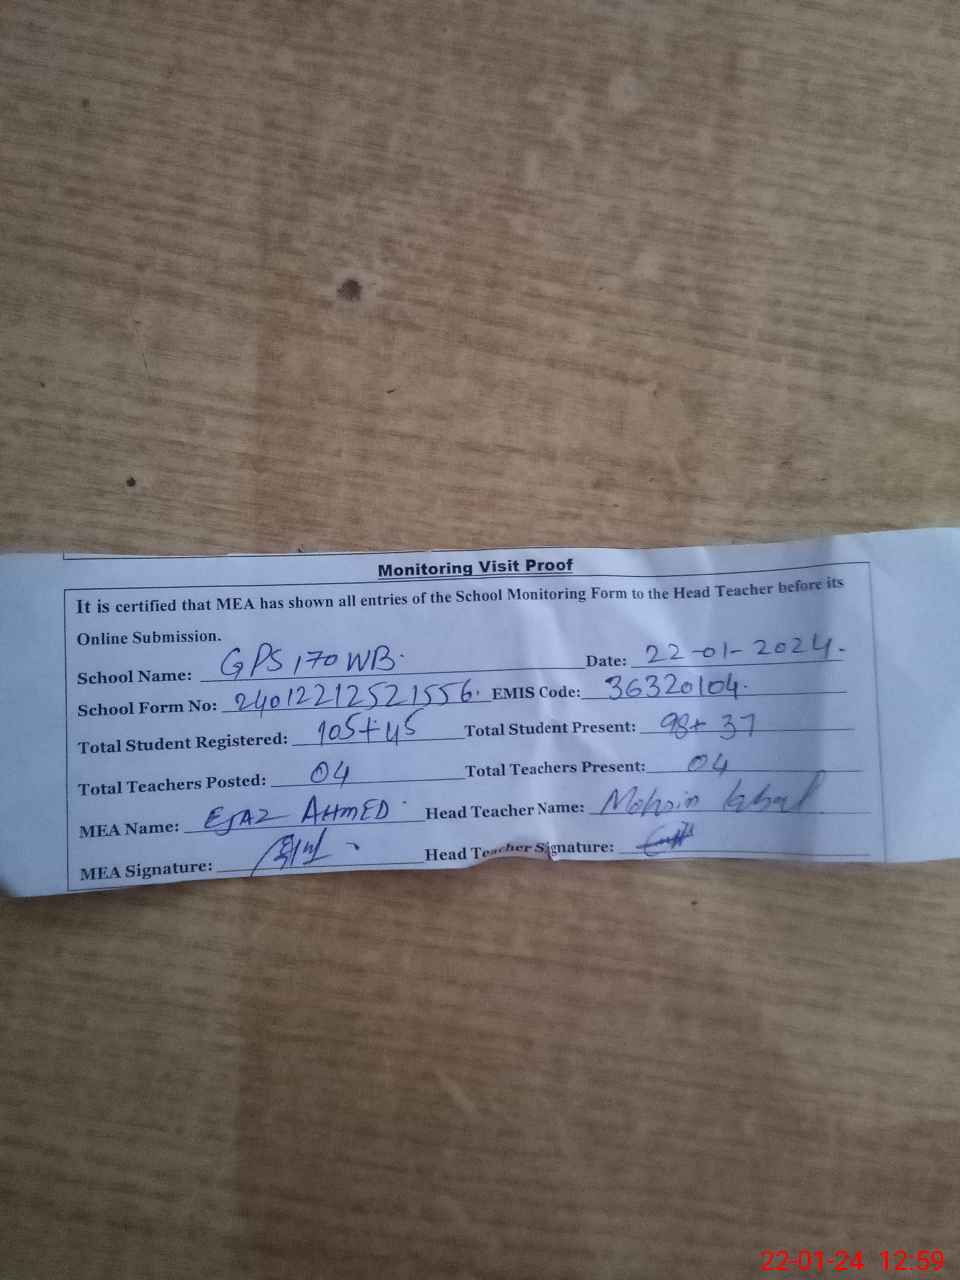 Monitoring Visit Proof
It is certified that MEA has shown all entries of the School Monitoring Form to the Head Teacher before its
Online Submission.
School Name: GPS 170 WB. Date: 22-01-2024.
School Form No: 240122121521556. EMIS Code: 36320104.
Total Student Registered: 105+45 Total Student Present: 98+37
Total Teachers Posted: 04 Total Teachers Present: 04
MEA Name: EJAZ AHMED Head Teacher Name: Mohsin Iqbal
MEA Signature: Head Teacher Signature:
22-01-24 12:59